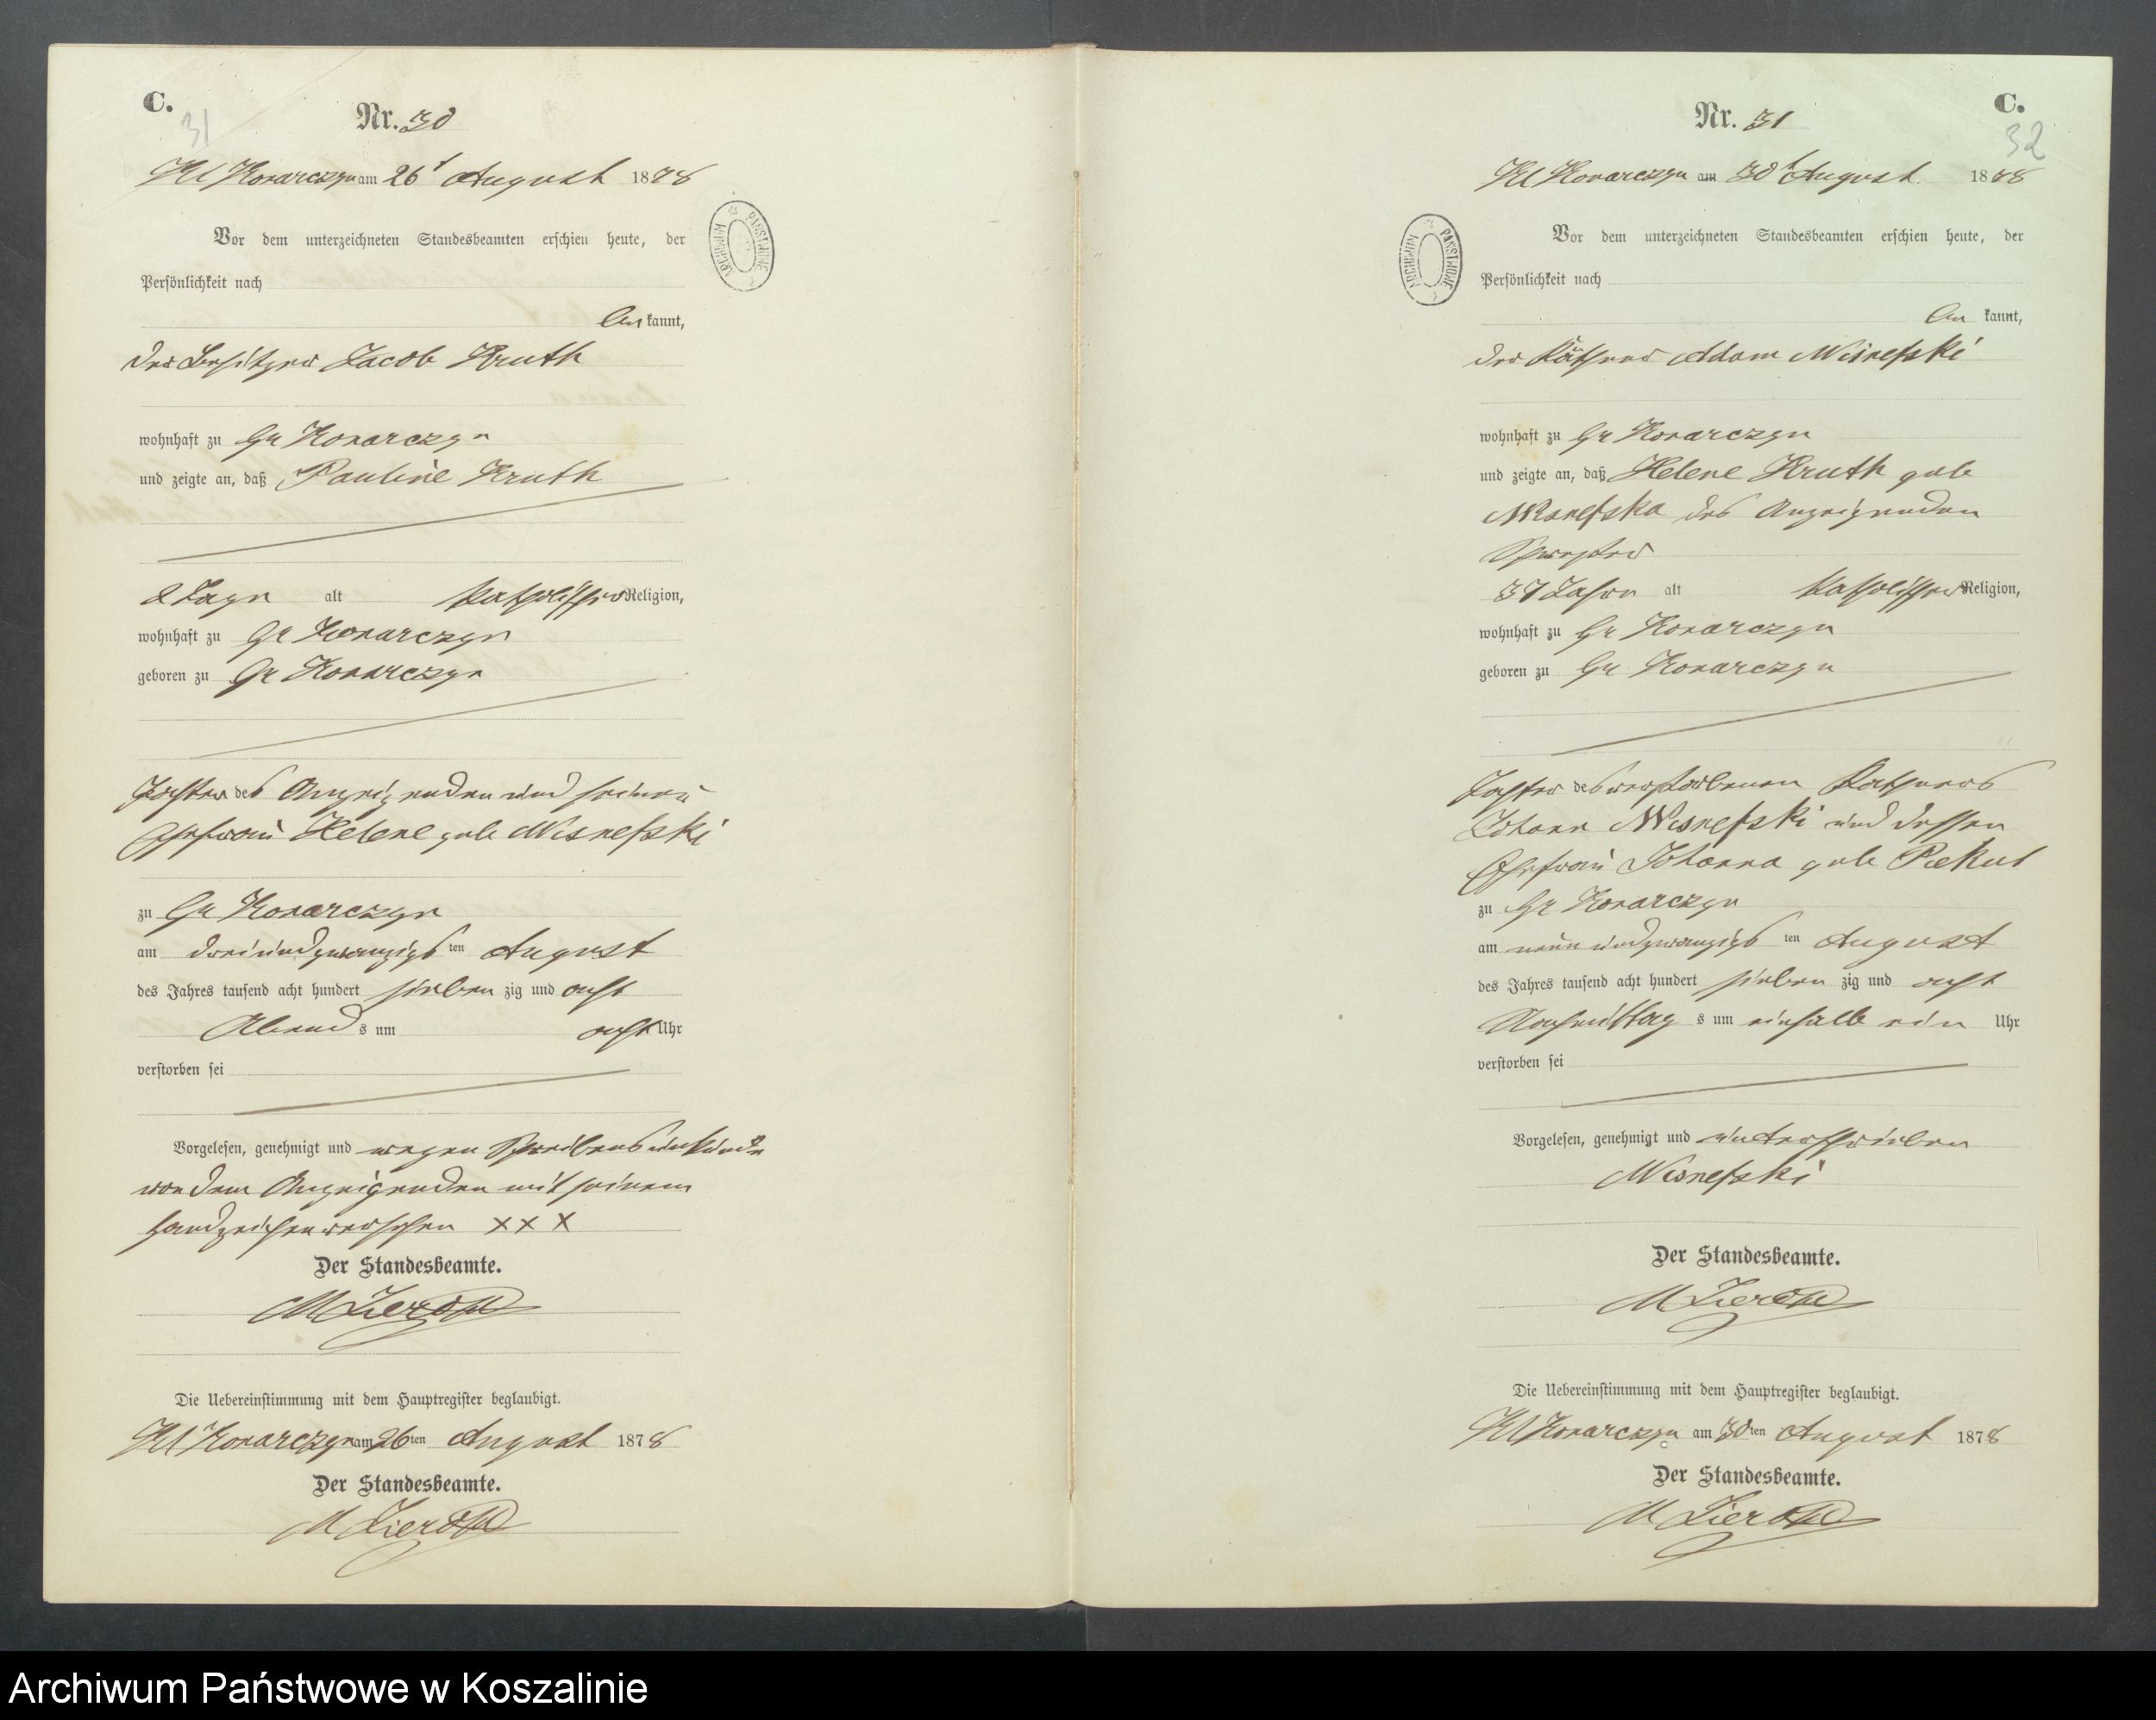 C.
31
Nr. 30
Kl Konarczyn am 26t August 1878
Vor dem unterzeichneten Standesbeamten erschien heute, der
Persönlichkeit nach
be kannt,
der Besitzer Jacob Kruth
wohnhaft zu Gr Konarczyn
und zeigte an, daß Pauline Kruth
2 Tage alt katholischer Religion,
wohnhaft zu Gr Konarczyn
geboren zu Gr Konarczyn
Tochter des Anzeigenden und seiner
Ehefrau Helene gebe Wisnefski
zu Gr Konarczyn
am dreiundzwanzigsten August
des Jahres tausend acht hundert sieben zig und acht
Abend s um acht Uhr
verstorben sei
Vorgelesen, genehmigt und wegen Schreibensunkunde
von dem Anzeigenden mit seinem
Handzeichen versehen XXX
Der Standesbeamte.
Die Uebereinstimmung mit dem Hauptregister beglaubigt.
Kl Konarczyn am 26ten August 1878
Der Standesbeamte.
ARCHIWUM PAŃSTWOWE
C.
32
Nr. 31
Kl Konarczyn am 30t August 1878
Vor dem unterzeichneten Standesbeamten erschien heute, der
Persönlichkeit nach
be kannt,
der Käthner Adam Wisnefski
wohnhaft zu Gr Konarczyn
und zeigte an, daß Helene Kruth gebe
Wisnefska des Anzeigenden
Schwester
37 Jahre alt katholischer Religion,
wohnhaft zu Gr Konarczyn
geboren zu Gr Konarczyn
Tochter des verstorbenen Kathners
Johann Wisnefski und dessen
Ehefrau Johanna gebe
zu Gr Konarczyn
am neunundzwanzigsten August
des Jahres tausend acht hundert sieben zig und acht
Nachmittag s um einhalb ein Uhr
verstorben sei
Vorgelesen, genehmigt und unterschrieben
Wisnefski
Der Standesbeamte.
Die Uebereinstimmung mit dem Hauptregister beglaubigt.
Kl Konarczyn am 30ten August 1878
Der Standesbeamte.
ARCHIWUM PAŃSTWOWE
Archiwum Państwowe w Koszalinie